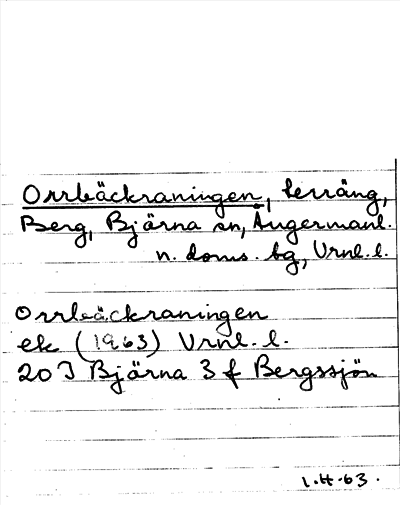 Orrbäckraningen, terräng,
Berg, Bjärna sn, Ångermanl.
n. doms. bg, Vrnl. l.
Orrbäckraningen
ek (1963) Vrnl. l.
20 J Bjärna 3 f Bergssjön
1.H.63.